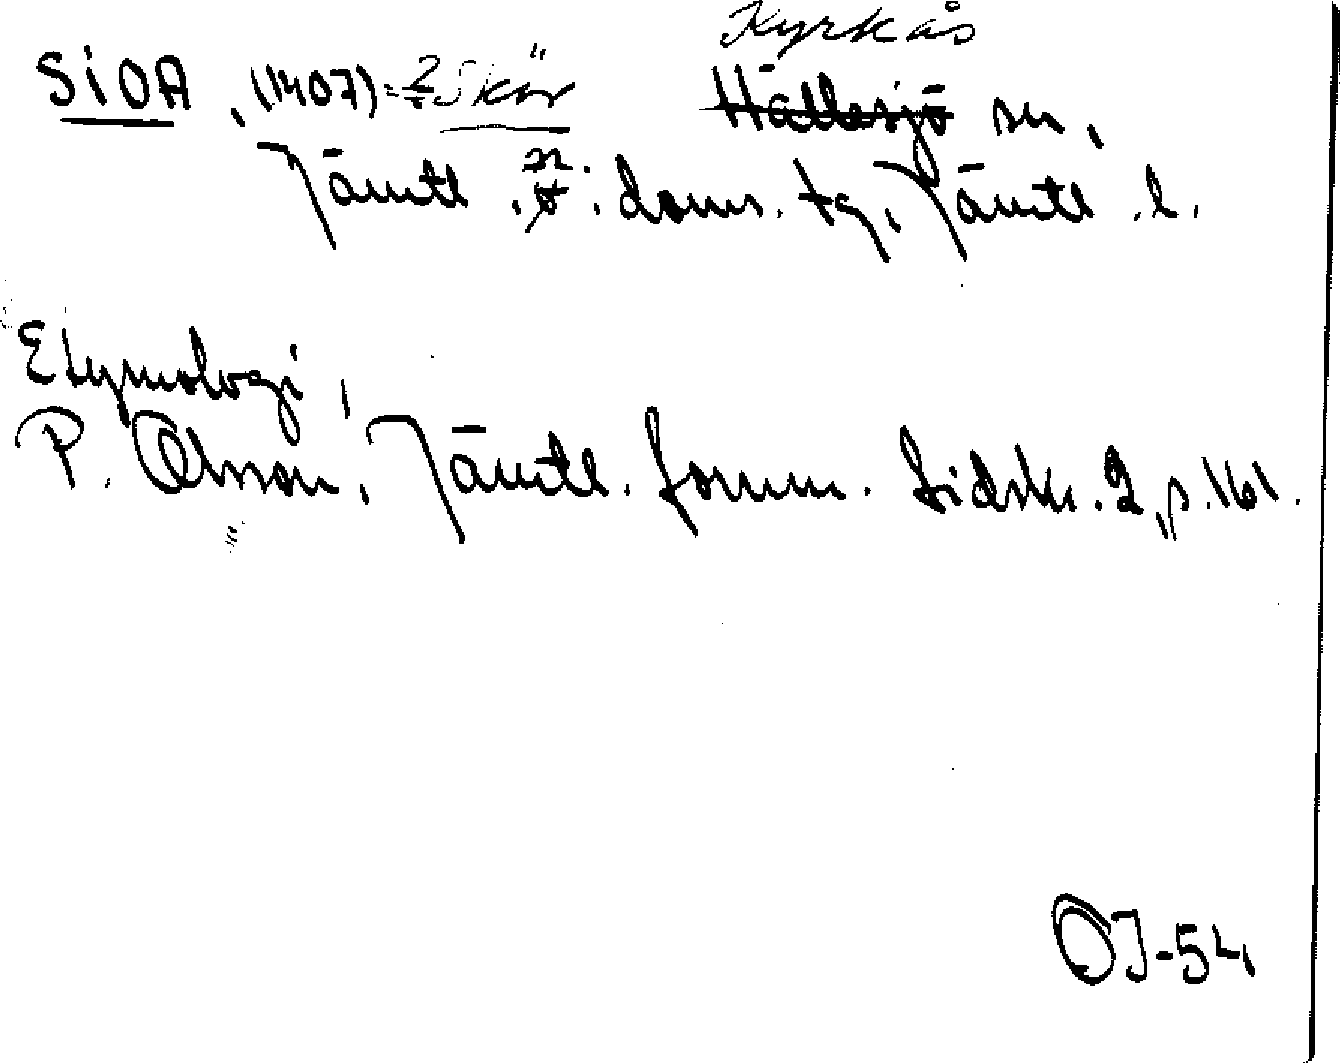 Kyrkås
SiOA, (1407) = Skör Hällesjö sn,
Jämtl. n. doms. tg, Jämtl. l.
Etymologi,
P. Olsson, Jämtl. fornm. tidskr. 2, p. 161.
OJ-54